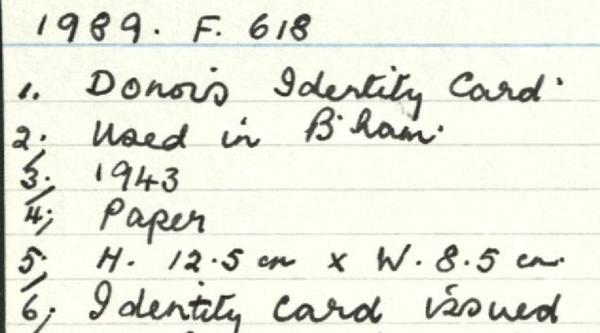 1989. F. 618
1. Donor's Identity Card.
2. Used in B'ham.
3. 1943
4. Paper
5. H. 12.5 cm x W. 8.5 cm.
6. Identity Card issued